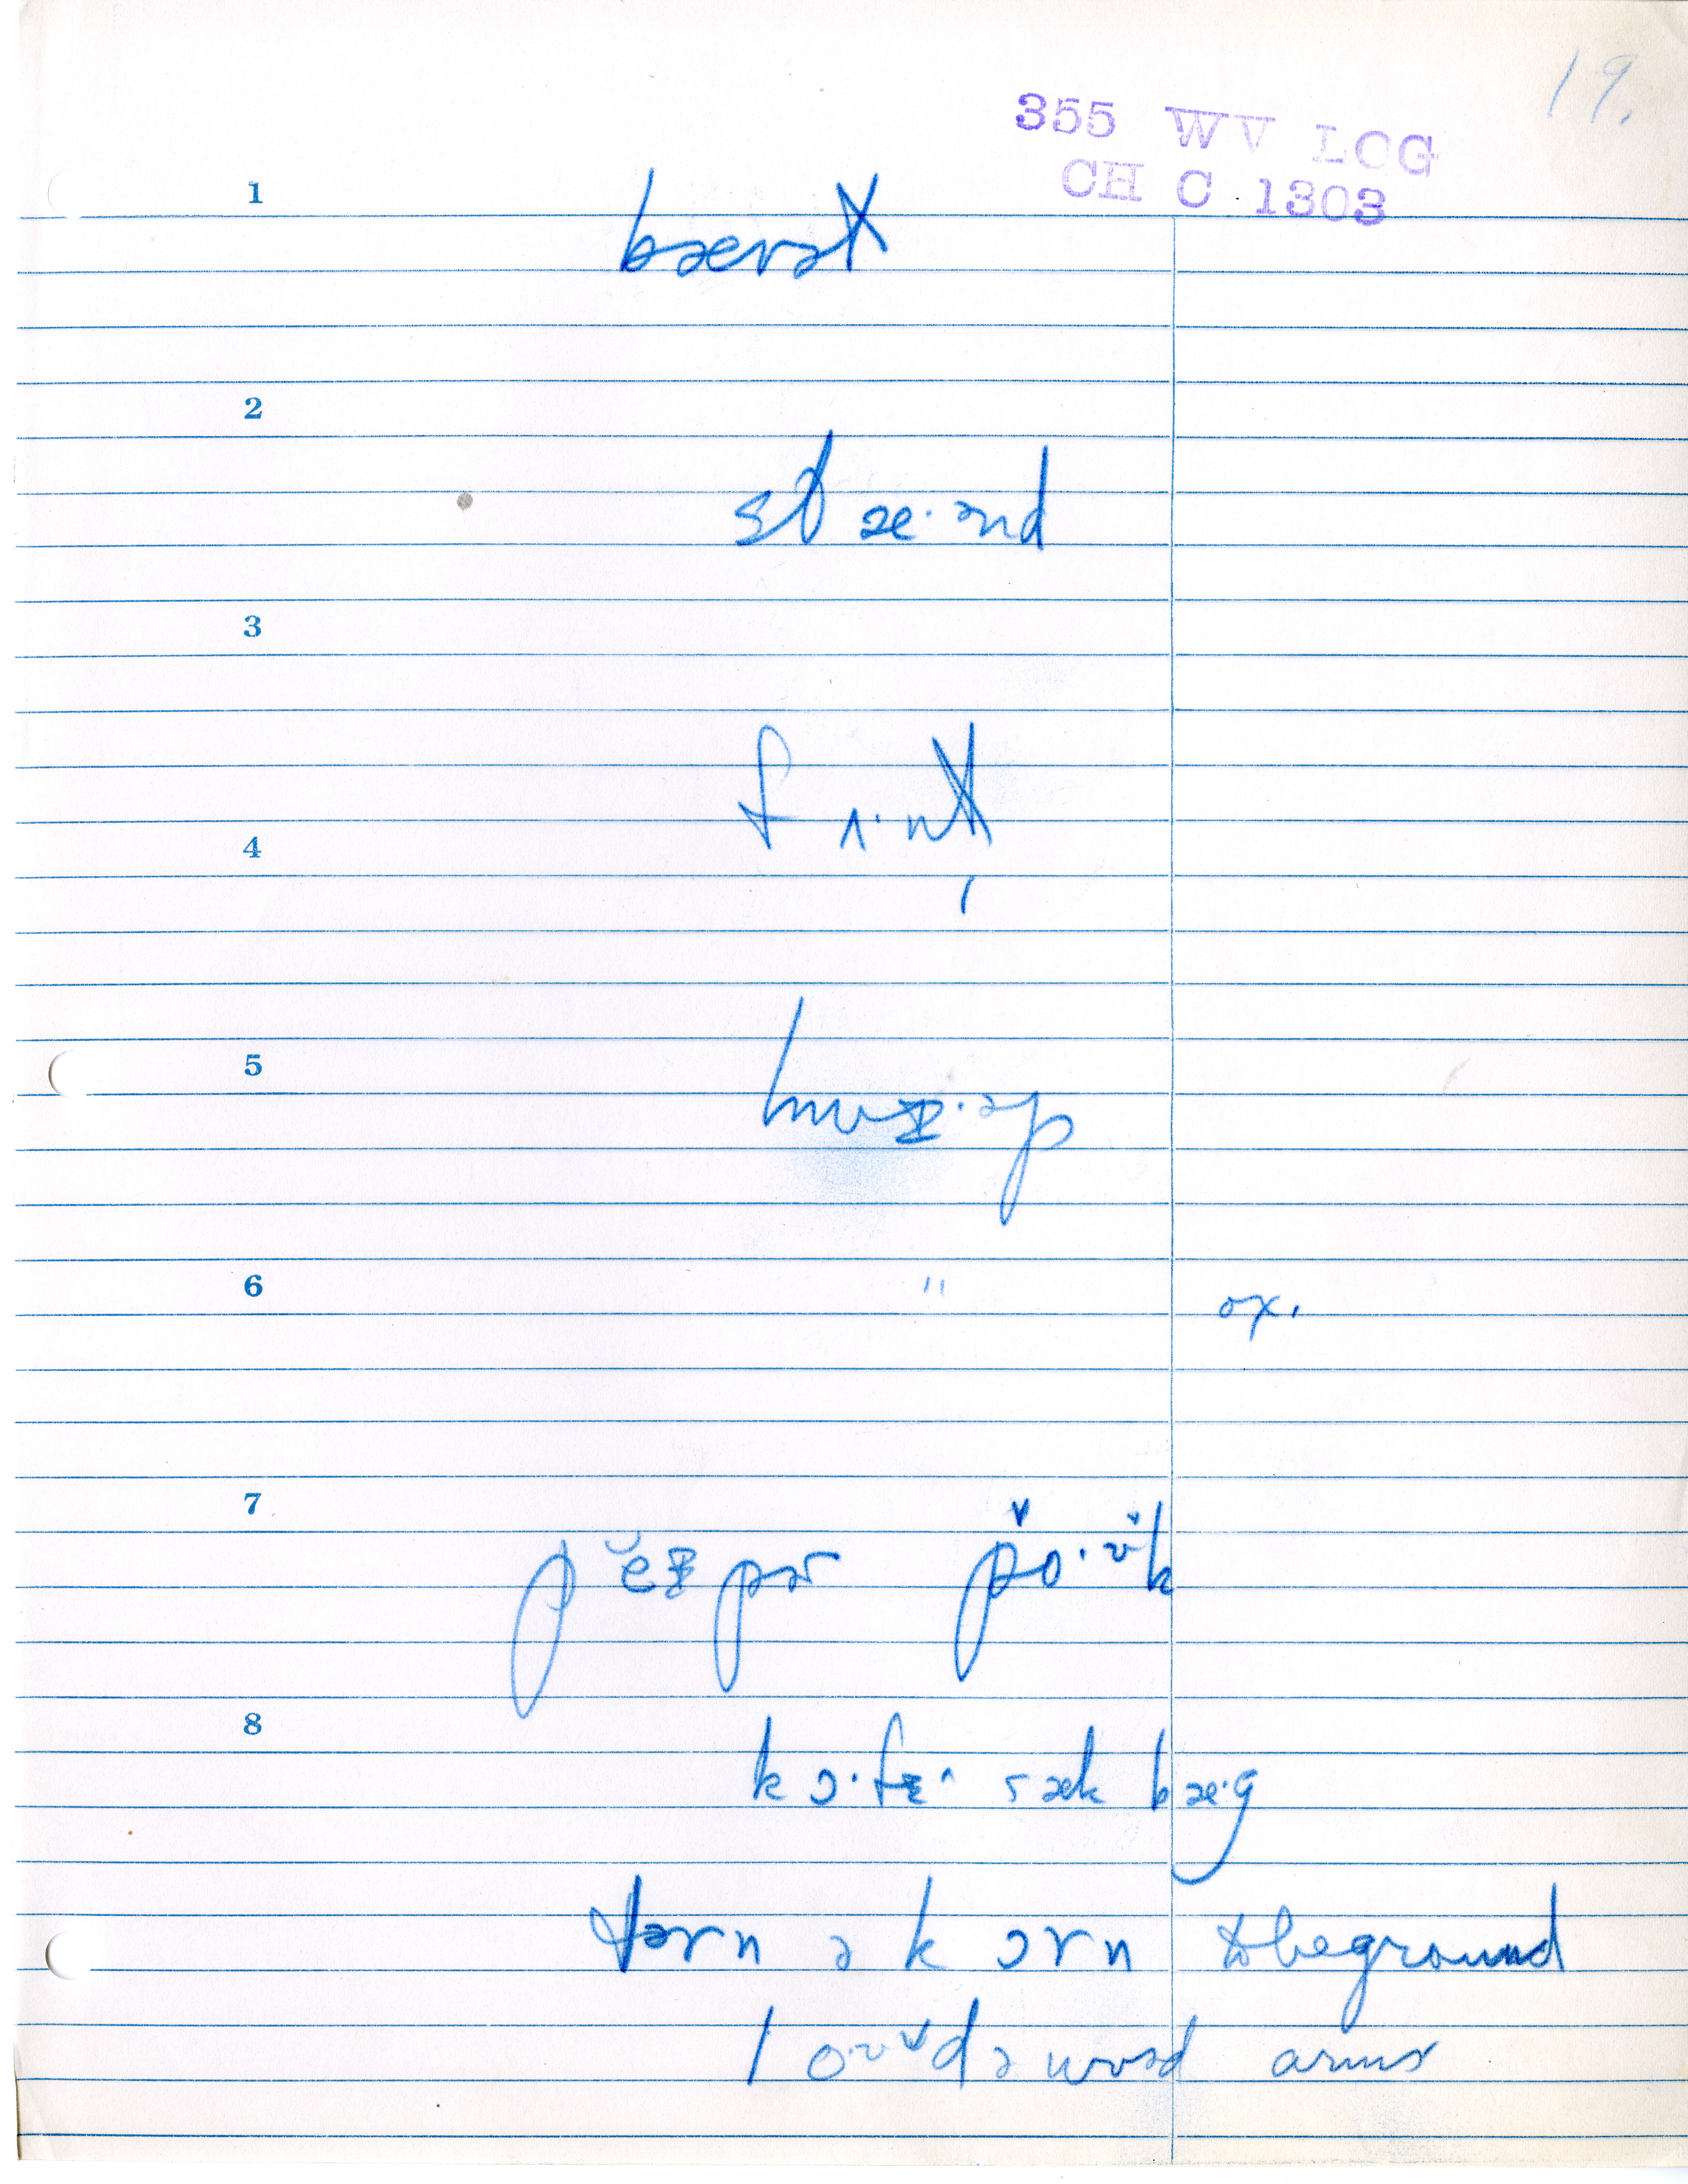 19.
355 WV LOG
CH C 1303
1
bærəl
2
stæ·ənd
3
fʌ·nḷ
4
5
hwɪ·əp
6
" ox.
7
pĕɪpər po·ʊk
8
kɔ·fɪ^ sæk bæ·g
tərn ə kɔrn to be ground
lo·ʊd ə wʊəd arms